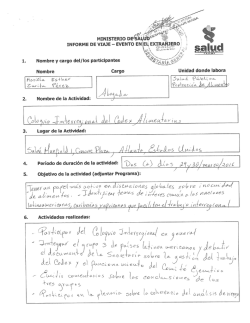 MINISTERIO DE SALUD
INFORME DE VIAJE – EVENTO EN EL EXTRANJERO
salud
1. Nombre y cargo del/los participantes
Nombre Cargo Unidad donde labora
Esther Salud
Pérez Protección de Alimentos
Abogada
2. Nombre de la Actividad:
Coloquio Interregional del Codex Alimentarius
3. Lugar de la Actividad:
Salón Plaza, Atlanta Estados Unidos
4. Período de duración de la actividad: Dos (2) días 29 y 30/marzo/
5. Objetivo de la actividad (adjuntar Programa):
Tener un papel más activo en discusiones globales sobre inocuidad
de alimentos. - Identificar temas de interés común a las naciones
latinoamericanas, caribeñas y africanas que facilitan el trabajo interregional
6. Actividades realizadas:
- Participar del Coloquio Interregional en general
- Integrar el grupo 3 de países latinoamericanos y debatir
el documento de la Secretaría sobre la gestión del trabajo
del Codex y el funcionamiento del Comité Ejecutivo
- Emitir comentarios sobre las conclusiones de los
tres grupos.
- Participar en la plenaria sobre la del análisis de